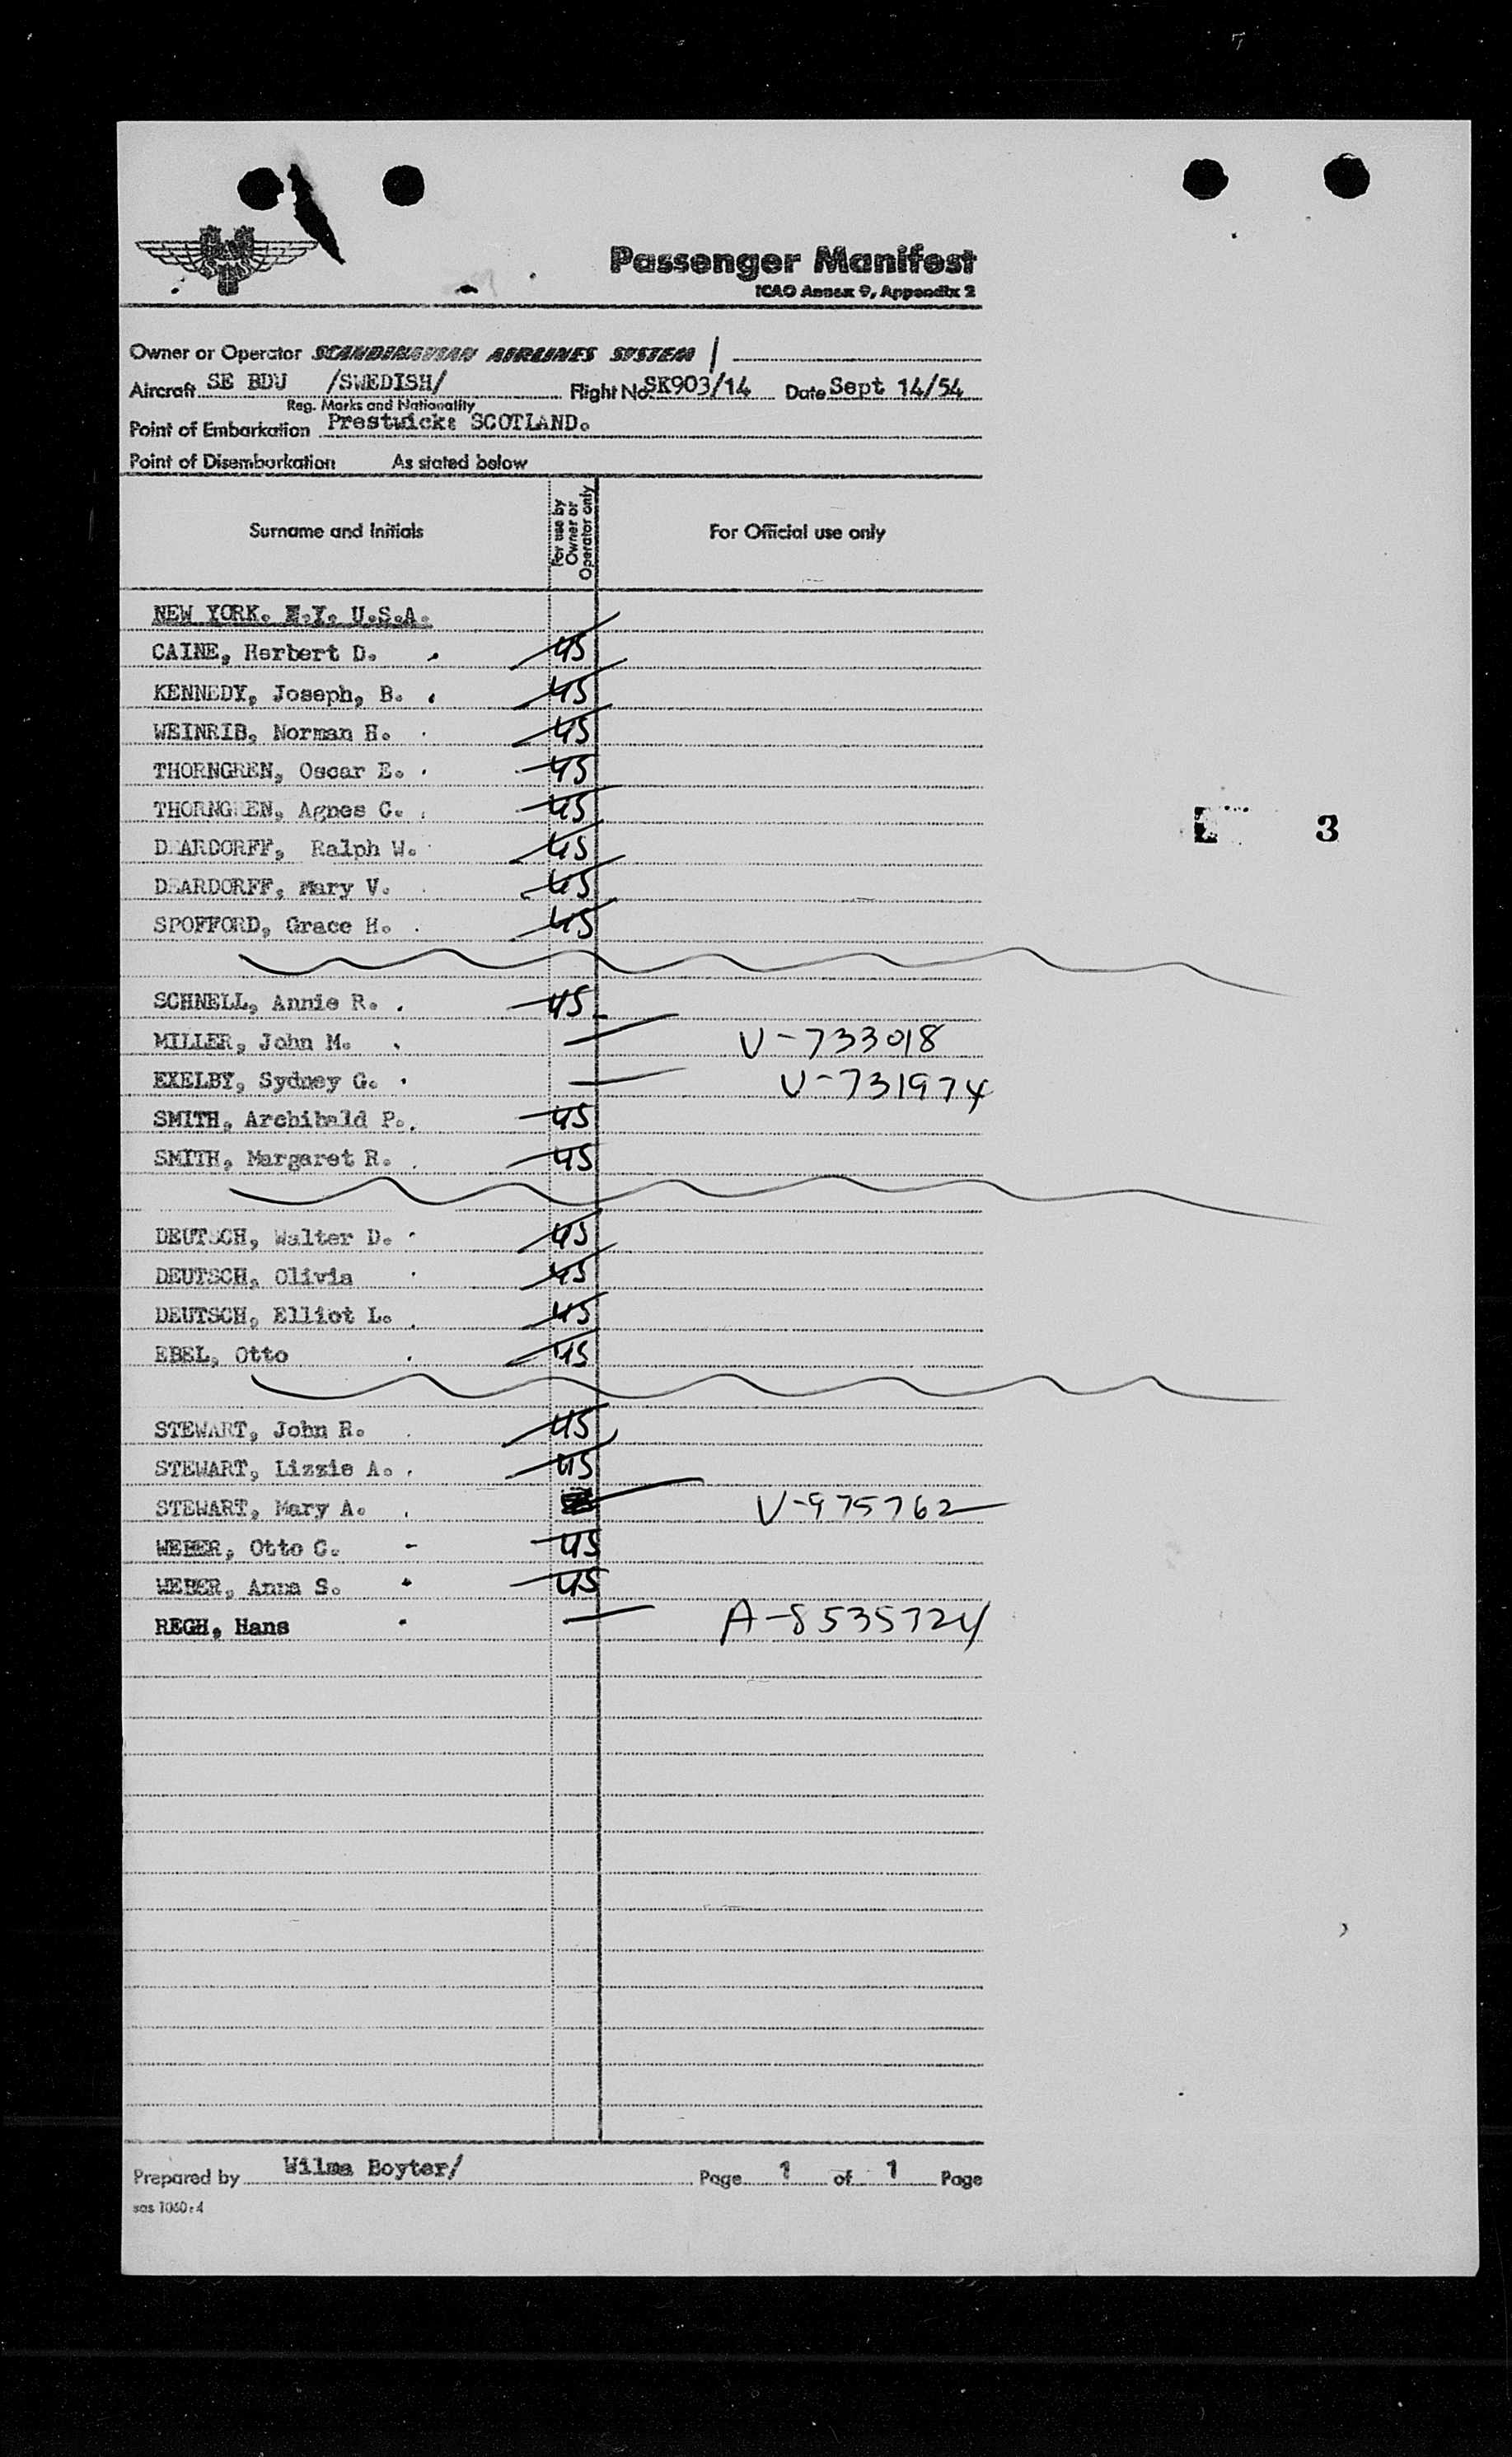 Passenger Manifest
ICAO Annex 9, Appendix 2
Owner or Operator SCANDINAVIAN AIRLINES SYSTEM /
Aircraft SE BDU /SWEDISH/ Flight No. SK903/14 Date Sept 14/54
Reg. Marks and Nationality
Point of Embarkation Prestwick: SCOTLAND.
Point of Disembarkation As stated below
Surname and Initials For use by Owner or Operator only For Official use only
NEW YORK. N.Y. U.S.A.
CAINE, Herbert D. US
KENNEDY, Joseph, B. US
WEINRIB, Norman H. US
THORNGREN, Oscar E. US
THORNGREN, Agnes C. US
3
DEARDORFF, Ralph W. US
DEARDORFF, Mary V. US
SPOFFORD, Grace H. US
SCHNELL, Annie R. US
MILLER, John M. V-733018
EXELBY, Sydney G. V-731974
SMITH, Archibald P. US
SMITH, Margaret R. US
DEUTSCH, Walter D. US
DEUTSCH, Olivia US
DEUTSCH, Elliot L. US
EBEL, Otto US
STEWART, John R. US
STEWART, Lizzie A. US
STEWART, Mary A. V-975762
WEBER, Otto C. US
WEBER, Anna S. US
REGH, Hans A-8535724
Prepared by Wilma Boyter/ Page 1 of 1 Page
sas 1060:4